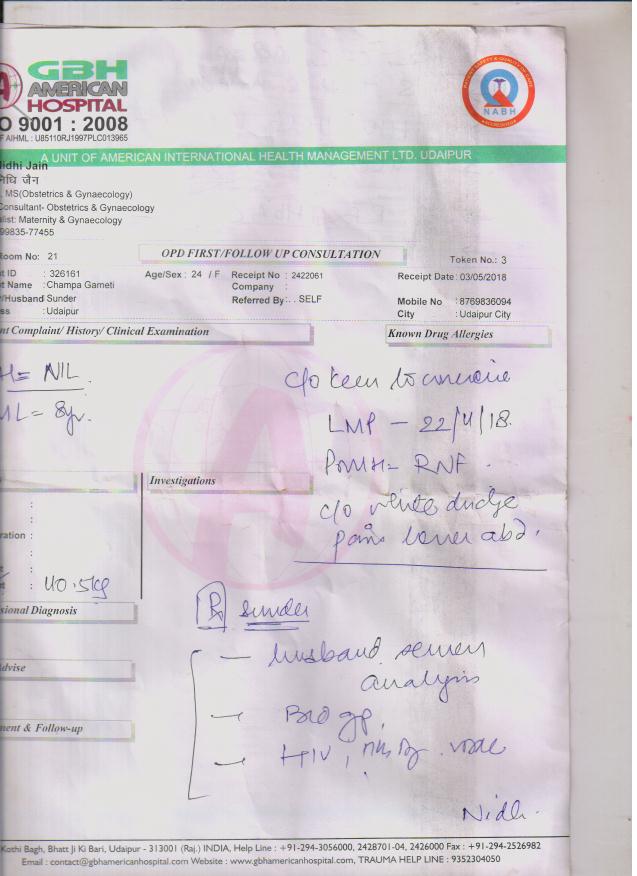 GBH
AMERICAN
HOSPITAL
O 9001 : 2008
F AIHML : U85110RJ1997PLC013965
PATIENT SAFETY & QUALITY OF CARE
NABH
ACCREDITED
A UNIT OF AMERICAN INTERNATIONAL HEALTH MANAGEMENT LTD. UDAIPUR
Nidhi Jain
निधि जैन
, MS(Obstetrics & Gynaecology)
Consultant- Obstetrics & Gynaecology
alist: Maternity & Gynaecology
99835-77455
Room No: 21
OPD FIRST/FOLLOW UP CONSULTATION
Token No.: 3
nt ID : 326161 Age/Sex : 24 / F Receipt No : 2422061 Receipt Date : 03/05/2018
nt Name : Champa Gameti Company :
r/Husband Sunder Referred By : . . SELF Mobile No : 8769836094
ss : Udaipur City : Udaipur City
nt Complaint/ History/ Clinical Examination Known Drug Allergies
H = NIL
ML = 8yr.
c/o keen to conceive
LMP - 22/4/18.
PMH = RNF.
Investigations
c/o white
pain lower abd.
ration :
: 40.5kg
sional Diagnosis
Rx Sunder
- husband semen
analysis
dvise
- Bld gp,
ment & Follow-up
- HIV, HBsAg. VDRL
Nidhi.
Kothi Bagh, Bhatt Ji Ki Bari, Udaipur - 313001 (Raj.) INDIA, Help Line : +91-294-3056000, 2428701-04, 2426000 Fax : +91-294-2526982
Email : contact@gbhamericanhospital.com Website : www.gbhamericanhospital.com, TRAUMA HELP LINE : 9352304050